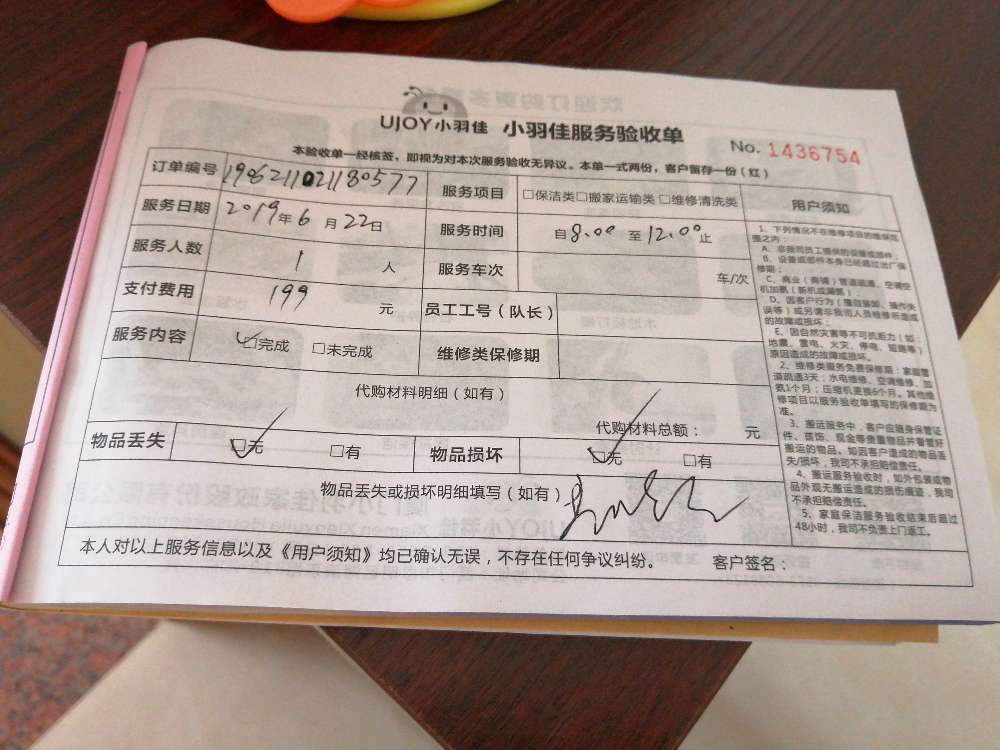 UJOY小羽佳 小羽佳服务验收单
No. 1436754
本验收单一经核签，即视为对本次服务验收无异议。本单一式两份，客户留存一份（红）
订单编号 服务项目 □保洁类□搬家运输类□维修清洗类
服务日期 2019年6月22日 服务时间 自8:00至12:00止
服务人数 1 人 服务车次 车/次
支付费用 199 元 员工工号（队长）
服务内容 ☑完成 □未完成 维修类保修期
代购材料明细（如有）
代购材料总额： 元
物品丢失 ☑无 □有 物品损坏 ☑无 □有
物品丢失或损坏明细填写（如有）
本人对以上服务信息以及《用户须知》均已确认无误，不存在任何争议纠纷。 客户签名：
用户须知
1、下列情况不在维修项目的维保范
围之内：
A、非我司员工提供的设备或部件；
B、设备或部件本身已经超过出厂保
修期；
C、商业（商铺）管道疏通、空调空
机加氨（新机或漏氨）；
D、因客户行为（擅自装卸、操作失
误等）或另请非我司人员维修所造成
的故障或损坏；
E、因自然灾害等不可抗力（如：
地震、雷电、火灾、停电、短路等）
原因造成的故障或损坏。
2、维修类服务免费保修期：家庭管
道疏通3天；水电维修、空调维修、加
氨1个月；压缩机更换6个月。其他维
修项目以服务验收单填写的保修期为
准。
3、搬运服务中，客户应随身保管证
件、首饰、现金等贵重物品并看管好
搬运的物品。如因客户造成的物品丢
失/损坏，我司不承担赔偿责任。
4、搬运服务验收时，如外包装或物
品外观无搬运造成的损伤痕迹，我司
不承担赔偿责任。
5、家庭保洁服务验收结束后超过
48小时，我司不负责上门返工。